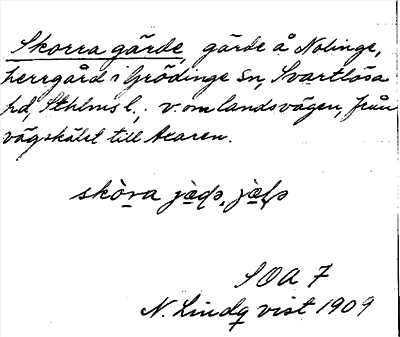 Skorra gärde, gärde å Nolinge,
herrgård i Grödinge sn, Svartlösa
hd, Sthlms l., v. om landsvägen, från
vägskälet till Axaren.
skòra
SOA 7
N. Lindq vist 1909